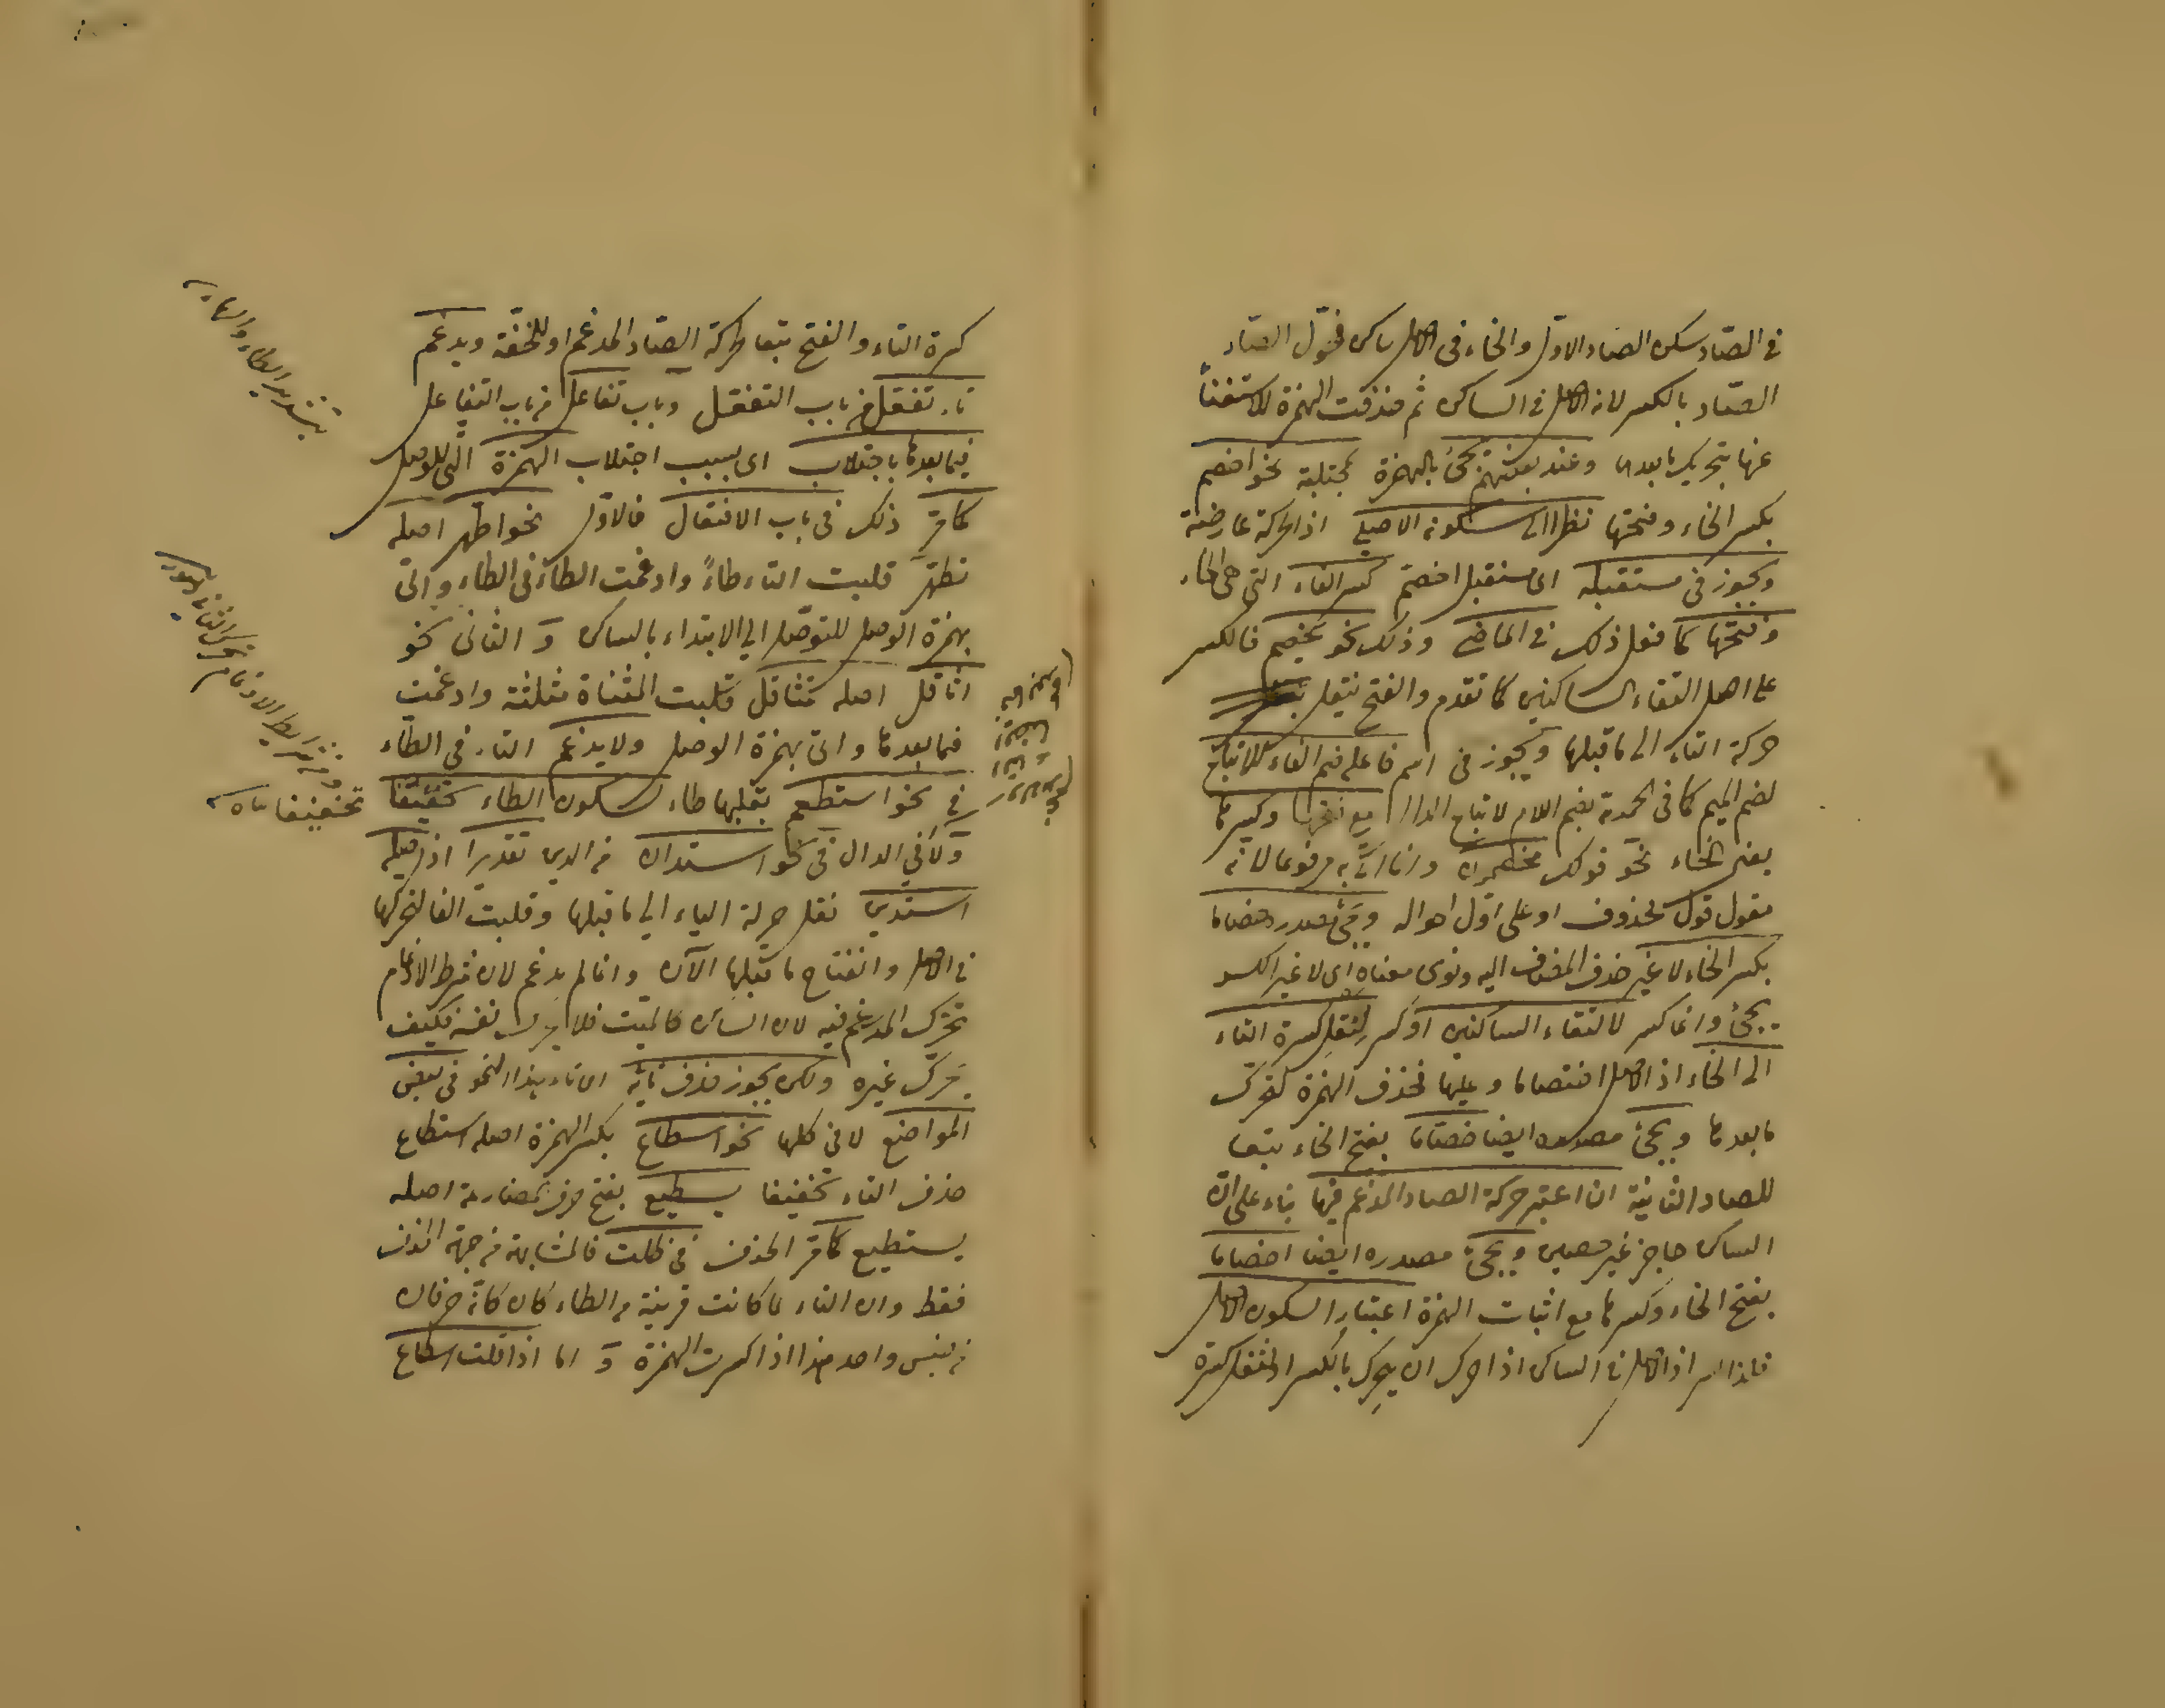 فى الصّاد سكن الصاد الاول والخاء فى الاصل ساكن فحوّل الصّاد
الصّاد بالكسر لانه الاصل فى الساكن ثم حذفت الهمزة للاستغناً
عنها بتحريك ما بعدها وعند بعضهم تجئ بالهمزة مجتلبة نحو اخصم
بكسر الخاء وفتحتها نظرا الى سكونه الاصلي اذ الحركة عارضة
ويجوز فى مستقبله اى مستقبل اخصم كسر الفاء التى هى الخاء
وفتحتها كما فعل ذلك فى الماضي وذلك نحو يخصم فالكسر
على اصل التقاء الساكنين كما تقدم والفتح بنقل
حركة التاء الى ما قبلها ويجوز فى اسم فاعله ضم الفاء للاتباع
لضم الميم كما فى الحمد لله بضم اللام لاتباع الدال مع فتحها وكسرها
بضم الخاء نحو قولك مخصمون وانما اتى به مرفوعا لانه
مقول قول محذوف او على اول احواله ويجئ مصدره خصاما
بكسر الخاء لا غير حذف المضاف اليه ونوى معناه اى لا غير الكسر
يجئ وانما كسر لالتقاء الساكنين او كسر لنقل كسرة التاء
الى الخاء اذ الاصل اختصاما وعليها تحذف الهمزة لتحرك
ما بعدها ويجئ مصدره ايضا خصاما بفتح الخاء تبعا
للصاد الثانية ان اعتبر حركة الصاد المدغم فيها بناء على ان
الساكن حاجز غير حصين ويجئ مصدره ايضا اخصاما
بفتح الخاء وكسرها مع اثبات الهمزة اعتبارا لسكون الاصل
اذ الاصل فى الساكن اذا حرك ان يحرك بالكسر او لنقل كسرة
كسرة التاء والفتح تبعا لحركة الصّاد المدغم او للخفّة ويدغم
تاء تفعّل من باب التفعّل وباب تفاعل من باب التفاعل
فيما بعدها باجتلاب اى بسبب اجتلاب الهمزة التى للوصل
كما مرّ ذلك فى باب الافتعال فالاوّل نحو اطهر اصله
تطهّر قلبت التاء طاءً وادغمت الطاء فى الطاء واتى
بهمزة الوصل للتوصّل الى الابتداء بالساكن و الثانى نحو
اثاقل اصله تثاقل قلبت المثناة مثلثة وادغمت
فيما بعدها واتى بهمزة الوصل ولا يدغم التاء فى الطّاء
فى نحو استطعم بقلبها طاء لسكون الطاء تحقيقا
ولا فى الدال فى نحو استدان من الدين تقديرا اذ اصله
استدين نقل حركة الياء الى ما قبلها وقلبت الفا لتحركها
فى الاصل وانفتاح ما قبلها الآن وانما لم يدغم لان شرط الادغام
تحرّك المدغم فيه لان الساكن كالميت فلا يحرك نفسه فكيف
يحرّك غيره ولكن يجوز حذف تائه اى تاء هذا النحو فى بعض
المواضع لا فى كلها نحو اسطاع بكسر الهمزة اصله استطاع
حذف التاء تخفيفا يسطيع بفتح حرف المضارعة اصله
يستطيع كما مرّ الحذف فى ظلت فالمشابهة من جهة الحذف
فقط وان التاء لما كانت قريبة من الطاء كان كانّه حرفان
من جنس واحد هذا اذا كسرت الهمزة و اما اذا قلت اسطاع
بتشديد الطاء والهاء
تخفيفا